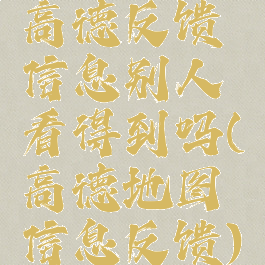 高德反馈
信息别人
看得到吗(
高德地图
信息反馈)